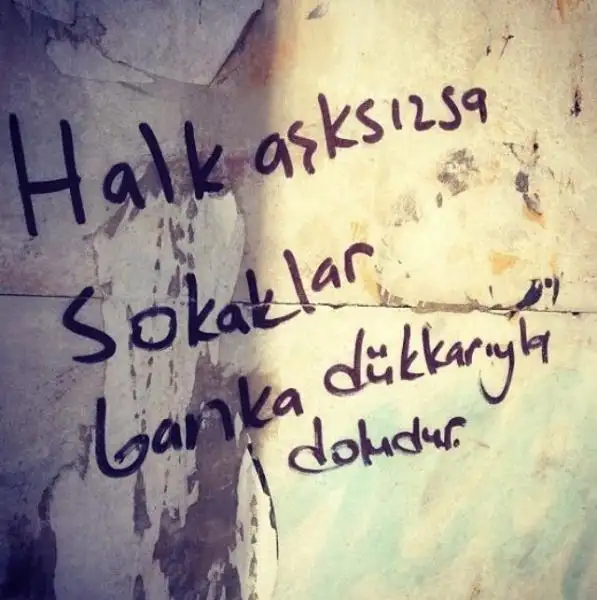 Halk aşksızsa
sokaklar
banka dükkarıyla
doludur.